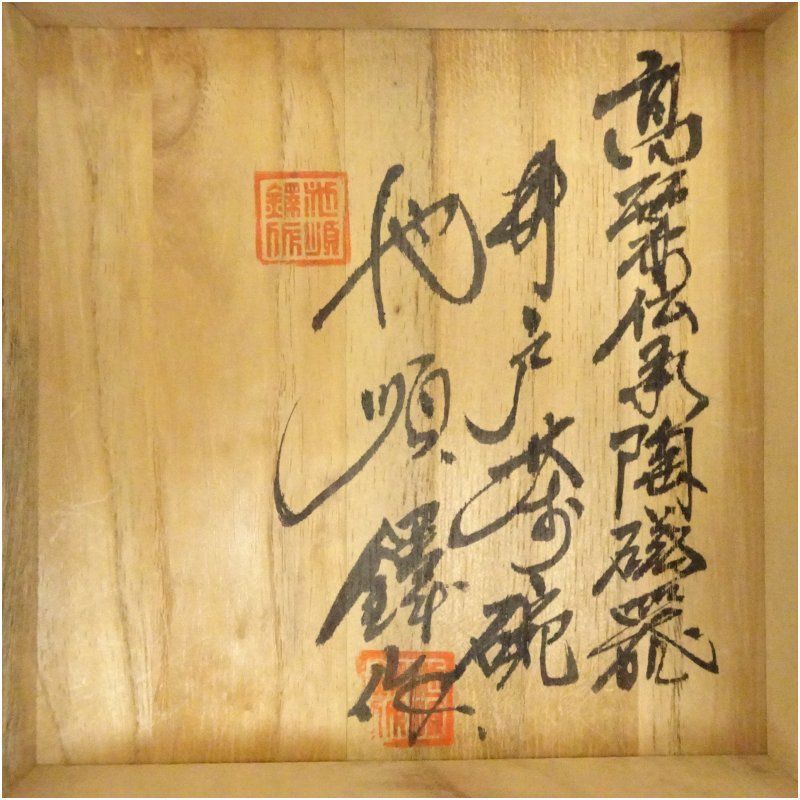 高麗伝承陶磁器
井戸茶碗
池順鐸作
池順
鐸作